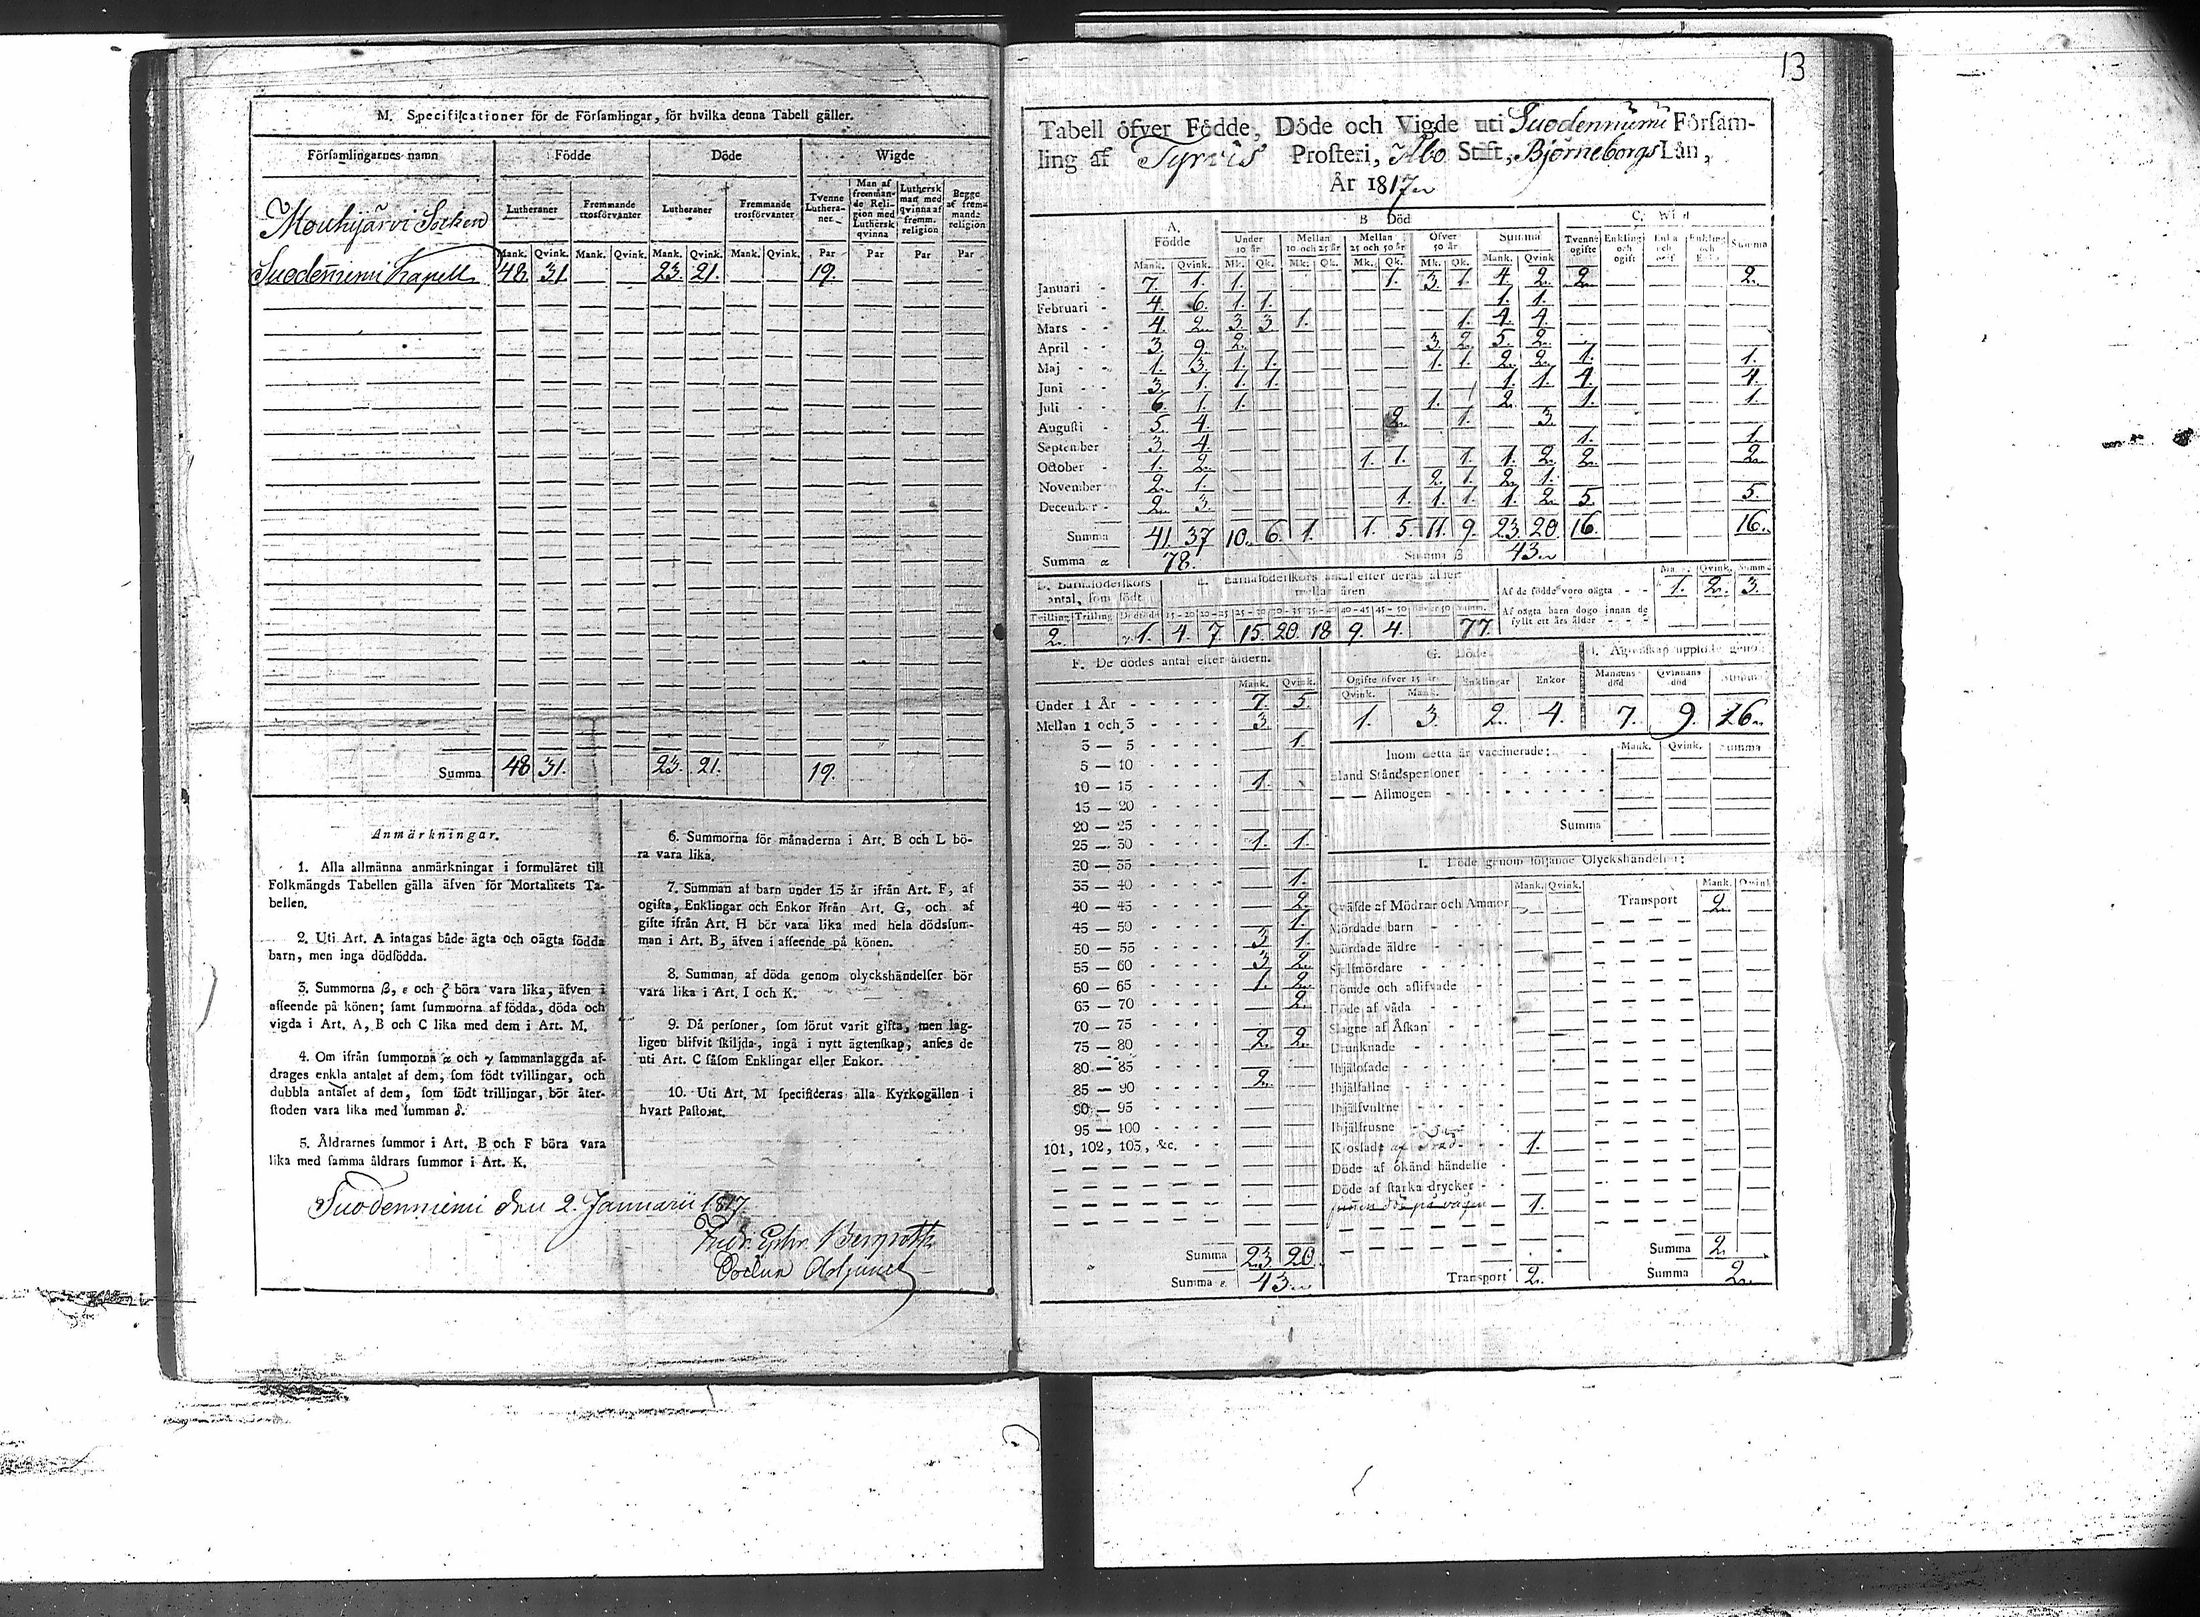 M. Specificationer för de Församlingar, för hvilka denna Tabell gäller.
Församlingarnes namn Födde Döde Wigde
Lutheraner Fremmande trosförvanter Lutheraner Fremmande trosförvanter Tvenne Lutheraner Man af fremmande Religion med Luthersk qvinna Luthersk man med qvinna af fremm. religion Begge af fremmande religion
Mank. Qvink. Mank. Qvink. Mank. Qvink. Mank. Qvink. Par Par Par Par
Mouhijärvi Socken
Suodenniemi Kapell 48. 31. 23. 21. 19.
Summa 48 31. 23. 21. 19.
Anmärkningar.
1. Alla allmänna anmärkningar i formuläret till
Folkmängds Tabellen gälla äfven för Mortalitets Ta-
bellen.
2. Uti Art. A intagas både ägta och oägta födda
barn, men inga dödfödda.
3. Summorna β, ε och ζ böra vara lika, äfven i
afseende på könen; samt summorna af födda, döda och
vigda i Art. A, B och C lika med dem i Art. M.
4. Om ifrån summorna α och γ sammanlaggda af-
drages enkla antalet af dem, som födt tvillingar, och
dubbla antalet af dem, som födt trillingar, bör åter-
stoden vara lika med summan δ.
5. Åldrarnes summor i Art. B och F böra vara
lika med samma åldrars summor i Art. K.
6. Summorna för månaderna i Art. B och L bö-
ra vara lika.
7. Summan af barn under 15 år ifrån Art. F, af
ogifta, Enklingar och Enkor ifrån Art. G, och af
gifte ifrån Art. H bör vara lika med hela dödssum-
man i Art. B, äfven i afseende på könen.
8. Summan af döda genom olyckshändelser bör
vara lika i Art. I och K.
9. Då personer, som förut varit gifta, men lag-
ligen blifvit skiljda, ingå i nytt ägtenskap, anses de
uti Art. C såsom Enklingar eller Enkor.
10. Uti Art. M specificeras alla Kyrkogällen i
hvart Pastorat.
Suodenniemi den 2. Januarii 1817.
13
Tabell öfver Födde, Döde och Vigde uti Suodenniemi Försam-
ling af Tyrvis Prosteri, Åbo Stift, Björneborgs Län,
År 1817
A. Födde B Död C. Wigd
Under 10 år Mellan 10 och 25 år Mellan 25 och 50 år Öfver 50 år Summa Tvenne ogifte Enkling och ogift Enka och ogift Enkling och Enka Summa
Mank. Qvink. Mk. Qk. Mk. Qk. Mk. Qk. Mk. Qk. Mank. Qvink
Januari 7. 1. 1. 1. 3. 1. 4. 2. 2. 2.
Februari 4. 6. 1. 1. 1. 1.
Mars 4. 2. 3. 3. 1. 1. 4. 4.
April 3. 9. 2. 3. 2. 5. 2.
Maj 1. 3. 1. 1. 1. 1. 2. 2. 1. 1.
Juni 3. 1. 1. 1. 1. 1. 4. 4.
Juli 6. 1. 1. 1. 2. 1. 1.
Augusti 5. 4. 2. 1. 3.
September 3. 4. 1. 1.
October 1. 2. 1. 1. 1. 1. 2. 2. 2.
November 2. 1. 2. 1. 2. 1.
December 2. 3. 1. 1. 1. 1. 2. 5. 5.
Summa 41 37 10. 6. 1. 1. 5. 11. 9. 23 20 16. 16.
Summa α 78. Summa β 43.
D. Barnaföderskors antal, som födt E. Barnaföderskors antal efter deras ålder mellan åren
Tvilling Trilling Dödfödde 15-20 20-25 25-30 30-35 35-40 40-45 45-50 öfver 50 Summ.
2. 1. 4. 7. 15. 20. 18 9. 4. 77.
Mank. Qvink. Summa
Af de födde voro oägta 1. 2. 3.
Af oägta barn dogo innan de
fyllt ett års ålder
F. De dödes antal efter åldern.
Mank. Qvink.
Under 1 År 7. 5
Mellan 1 och 3 3.
3 — 5 1.
5 — 10
10 — 15 1.
15 — 20
20 — 25
25 — 30 1. 1.
30 — 35
35 — 40 1.
40 — 45 2.
45 — 50 1.
50 — 55 3. 1.
55 — 60 3. 2.
60 — 65 1. 2.
65 — 70 2.
70 — 75
75 — 80 2. 2.
80 — 85
85 — 90 2.
90 — 95
95 — 100
101, 102, 103, &c.
Summa 23 20
Summa ε. 43.
G. Döde
Ogifte öfver 15 år Enklingar Enkor
Qvink. Mank.
1. 3. 2. 4.
H. Ägtenskap upplöste genom
Mannens död Qvinnans död Summa
7. 9. 16.
Inom detta år vaccinerade: Mank. Qvink. Summa
bland Ståndspersoner
— — Allmogen
Summa
I. Döde genom följande Olyckshändelser:
Mank. Qvink. Mank. Qvink
Qväfde af Mödrar och Ammor Transport 2.
Mördade barn
Mördade äldre
Sjelfmördare
Dömde och aflifvade
Döde af våda
Slagne af Åskan
Drunknade
Ihjälosade
Ihjälfallne
Ihjälsvultne
Ihjälfrusne
Krossade af Träd 1.
Döde af okänd händelse
Döde af starka drycker
funnen död på vägen 1.
Transport 2. Summa 2.
Summa 2.